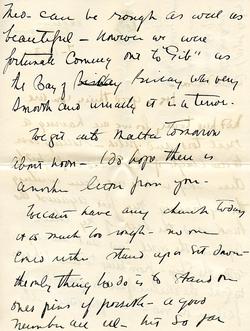 Med- can be rough as well as
beautiful - However we were
fortunate coming out to "Gib" as
the Bay of Biscay was very
smooth and usually it is a terror.
We get into Malta tomorrow
about noon - I do hope there is
another letter from you -
We can't have any church today
it is much too rough - no one
could either stand up or sit down -
the only thing to do is to stand on
ones pins if possible - a good
number are ill - but so far